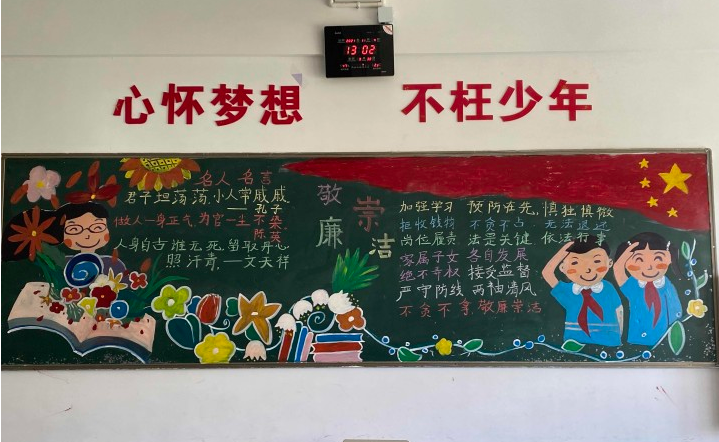 13 02
心怀梦想 不枉少年
名人名言
君子坦荡荡,小人常戚戚
——孔子
做人一身正气,为官一尘不染
陈英
人身自古谁无死,留取丹心
照汗青。——文天祥
敬廉
崇洁
加强学习 预防在先 慎独慎微
拒收钱物 不贪不占 无法退还
岗位履责 法是关键 依法行事
家属子女 各自发展
绝不寻权 接受监督
严守防线 两袖清风
不贪不拿,敬廉崇洁